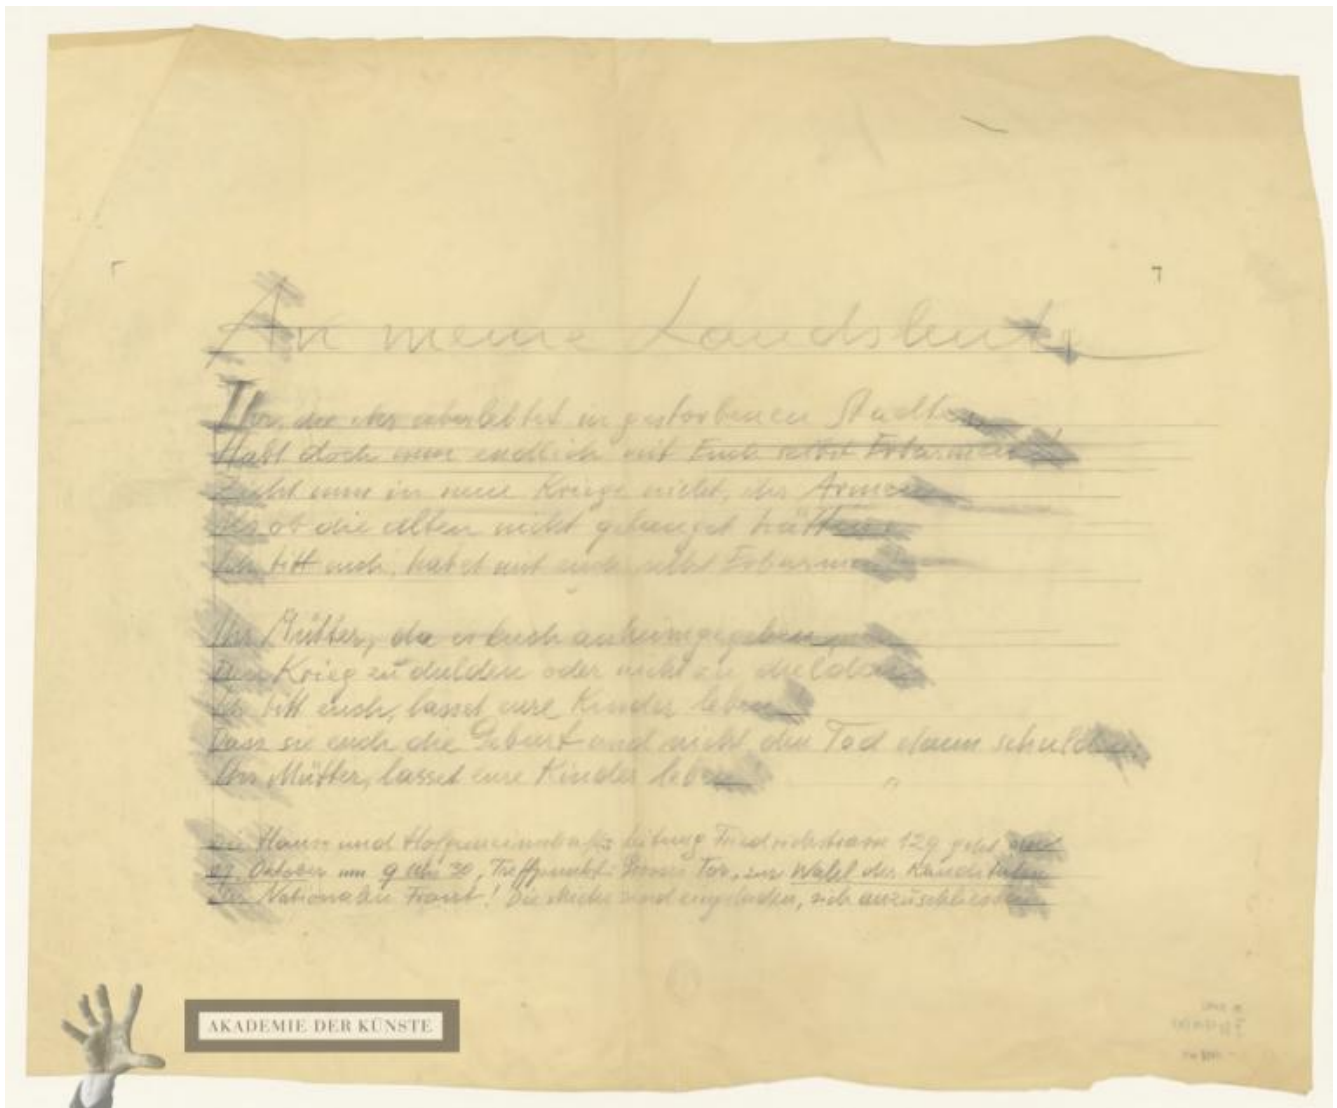 An meine Landsleute
Ihr, die ihr überlebtet in gestorbenen Städten
Habt doch nun endlich mit Euch selbst Erbarmen
Zieht nun in neue Kriege nicht, ihr Armen
Als ob die alten nicht gelanget hätten
Ich bitt euch, habet mit euch selbst Erbarmen
Ihr Mütter, da es Euch anheimgegeben
Den Krieg zu dulden oder nicht zu dulden
Ich bitt euch, lasset eure Kinder leben
Dass sie euch die Geburt und nicht den Tod dann schulden
Ihr Mütter, lasset eure Kinder leben
Die Haus und Hofgemeinschafts leitung Friedrichstrasse 129 geht
Oktober um 9 Uhr 30, Treffpunkt: Tor, zur Wahl der Kandidaten
der Nationalen Front! Die sind eingeladen, sich anzuschliessen
AKADEMIE DER KÜNSTE